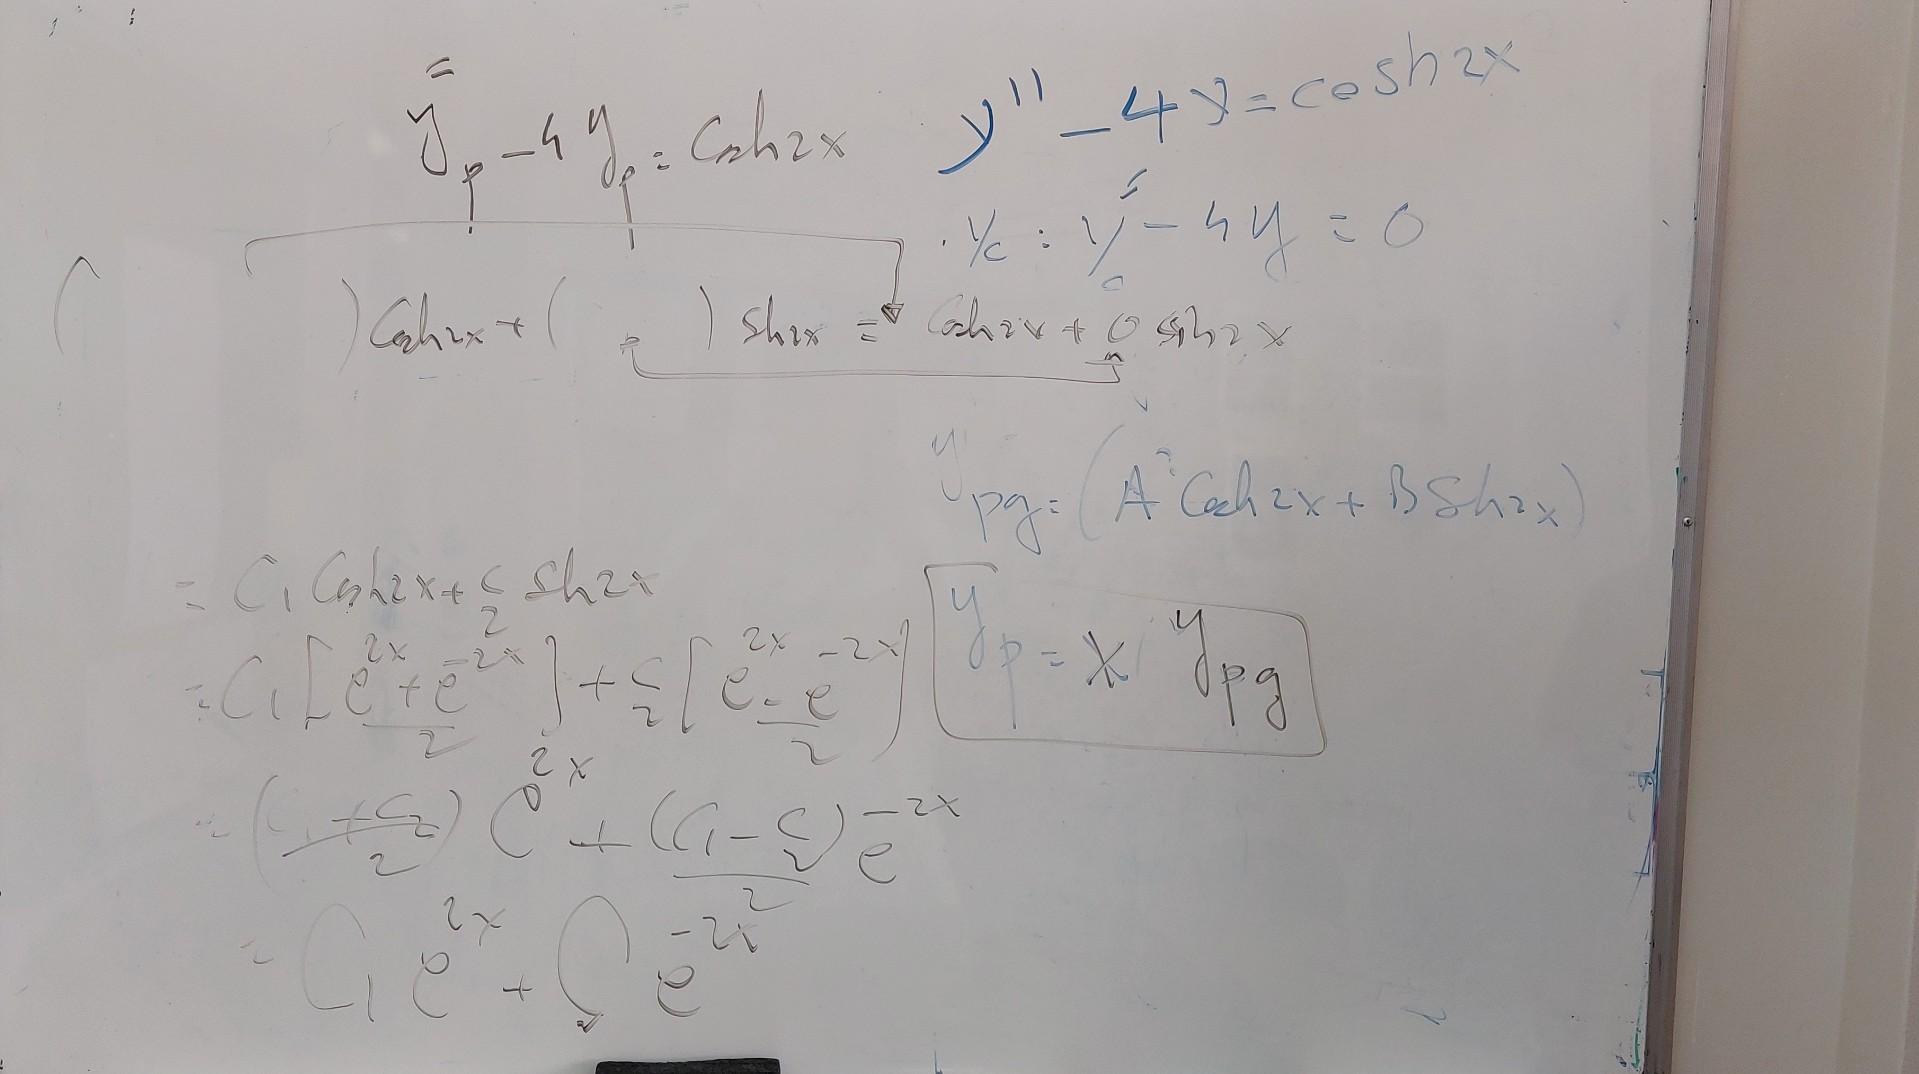 y'' - 4y = cosh 2x
y''p - 4yp = Cosh 2x
yc : y''c - 4y = 0
( ) Cosh 2x + ( ) Sh 2x = Cosh 2x + 0 Sinh 2x
ypg = (A Cosh 2x + B Sh 2x)
= C1 Cosh 2x + C2 Sh 2x
yp = x ypg
= C1 [(e^2x + e^-2x)/2] + C2 [(e^2x - e^-2x)/2]
= ((C1 + C2)/2) e^2x + ((C1 - C2)/2) e^-2x
= C1 e^2x + C2 e^-2x